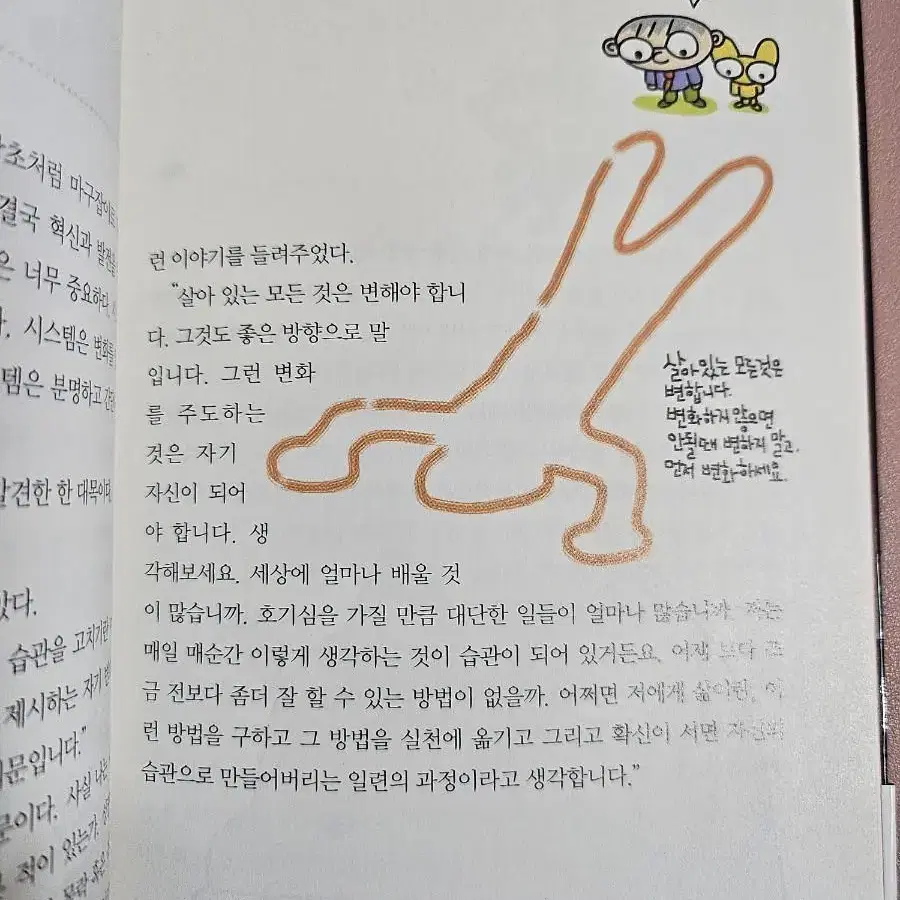 초처럼 마구잡이로
결국 혁신과 발전을
은 너무 중요하다.
시스템은 변화를
템은 분명하고
발견한 한 대목이다.
았다.
습관을 고치기란
제시하는 자기
문입니다."
문이다. 사실 나는
적이 있는가.
런 이야기를 들려주었다.
"살아 있는 모든 것은 변해야 합니
다. 그것도 좋은 방향으로 말
입니다. 그런 변화
를 주도하는
것은 자기
자신이 되어
야 합니다. 생
각해보세요. 세상에 얼마나 배울 것
이 많습니까. 호기심을 가질 만큼 대단한 일들이 얼마나 많습니까. 저는
매일 매순간 이렇게 생각하는 것이 습관이 되어 있거든요. 어제보다 조
금 전보다 좀더 잘 할 수 있는 방법이 없을까. 어쩌면 저에게 삶이란, 이
런 방법을 구하고 그 방법을 실천에 옮기고 그리고 확신이 서면 자신의
습관으로 만들어버리는 일련의 과정이라고 생각합니다."
살아있는 모든것은
변합니다.
변화하지 않으면
안될때 변하지 말고,
먼저 변화하세요.